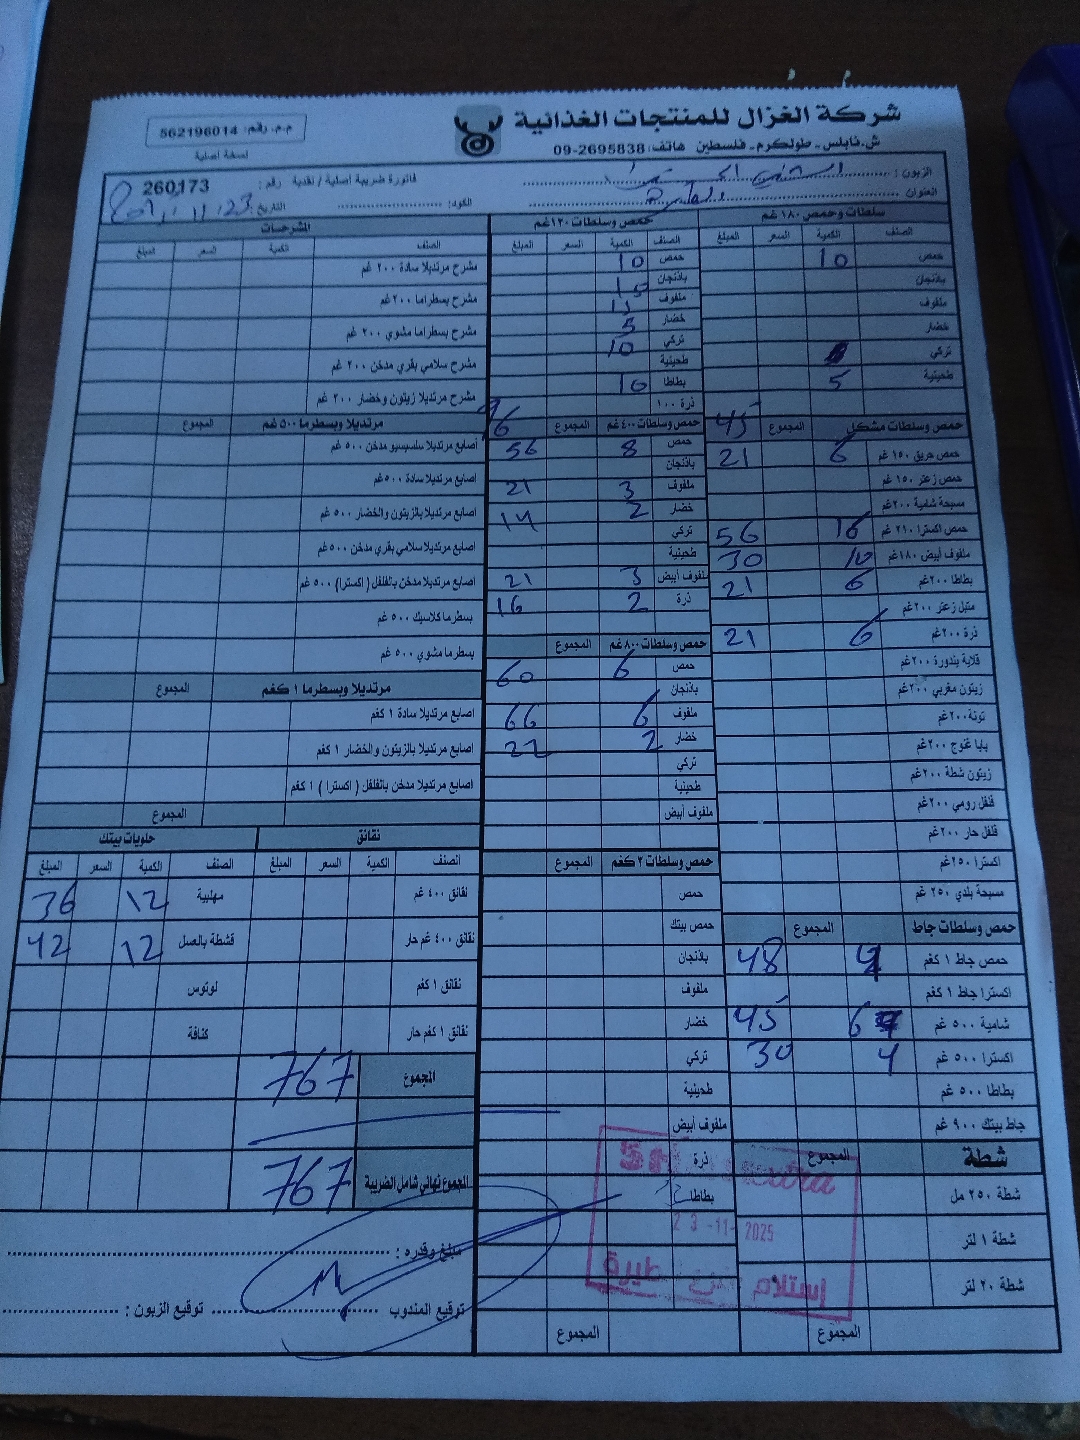 شركة الغزال للمنتجات الغذائية
ش.نابلس - طولكرم - فلسطين هاتف: 2695838-09
م.م. رقم: 562196014
نسخة اصلية
الزبون :
العنوان :
فاتورة ضريبة اصلية / نقدية رقم : 260173
الكود: التاريخ: 23/11/
سلطات وحمص ١٨٠ غم
الصنف الكمية السعر المبلغ
حمص 10
باذنجان
ملفوف
خضار
تركي
طحينية 5
45
حمص وسلطات مشكل المجموع
حمص حريق ١٥٠ غم 6 21
حمص زعتر ١٥٠ غم
مسبحة شامية ٢٠٠غم
حمص اكسترا ٢١٠ غم 16 56
ملفوف أبيض ١٨٠غم 10 30
بطاطا ٢٠٠غم 6 21
متبل زعتر ٢٠٠غم
ذرة ٢٠٠غم 6 21
قلاية بندورة ٢٠٠غم
زيتون مغربي ٢٠٠غم
تونة ٢٠٠غم
بابا غنوج ٢٠٠غم
زيتون شطة ٢٠٠غم
فلفل رومي ٢٠٠غم
فلفل حار ٢٠٠غم
اكسترا ٢٥٠غم
مسبحة بلدي ٢٥٠ غم
حمص وسلطات جاط المجموع
حمص جاط ١ كغم 4 48
اكسترا جاط ١ كغم
شامية ٥٠٠ غم 6 45
اكسترا ٥٠٠ غم 4 30
بطاطا ٥٠٠ غم
جاط بيتك ٩٠٠ غم
شطة المجموع
شطة ٢٥٠ مل
شطة ١ لتر
شطة ٢٠ لتر
المجموع
حمص وسلطات ١٣٠غم
الصنف الكمية السعر المبلغ
حمص 10
باذنجان 15
ملفوف 15
خضار 5
تركي 10
طحينية
بطاطا 10
ذرة ١٠٠
حمص وسلطات ٤٠٠ غم المجموع
حمص 8 56
باذنجان
ملفوف 3 21
خضار 2 14
تركي
طحينية
ملفوف أبيض 3 21
ذرة 2 16
حمص وسلطات ٨٠٠ غم المجموع
حمص 6 60
باذنجان
ملفوف 6 66
خضار 2 22
تركي
طحينية
ملفوف أبيض
حمص وسلطات ٢ كغم المجموع
حمص
حمص بيتك
باذنجان
ملفوف
خضار
تركي
طحينية
ملفوف أبيض
ذرة
بطاطا
المجموع
المشرحات
الصنف الكمية السعر المبلغ
مشرح مرتديلا سادة ٢٠٠ غم
مشرح بسطراما ٢٠٠غم
مشرح بسطراما مشوي ٢٠٠ غم
مشرح سلامي بقري مدخن ٢٠٠ غم
مشرح مرتديلا زيتون وخضار ٢٠٠ غم
مرتديلا وبسطرما ٥٠٠ غم المجموع
اصابع مرتديلا سلسيسيو مدخن ٥٠٠ غم
اصابع مرتديلا سادة ٥٠٠غم
اصابع مرتديلا بالزيتون والخضار ٥٠٠ غم
اصابع مرتديلا سلامي بقري مدخن ٥٠٠غم
اصابع مرتديلا مدخن بالفلفل ( اكسترا ) ٥٠٠ غم
بسطرما كلاسيك ٥٠٠ غم
بسطرما مشوي ٥٠٠ غم
مرتديلا وبسطرما ١ كغم المجموع
اصابع مرتديلا سادة ١ كغم
اصابع مرتديلا بالزيتون والخضار ١ كغم
اصابع مرتديلا مدخن بالفلفل ( اكسترا ) ١ كغم
المجموع
نقانق
الصنف الكمية السعر المبلغ
نقانق ٤٠٠ غم
نقانق ٤٠٠ غم حار
نقانق ١ كغم
نقانق ١ كغم حار
حلويات بيتك
الصنف الكمية السعر المبلغ
مهلبية 12 36
قشطة بالعسل 12 42
لوتوس
كنافة
المجموع 767
المجموع نهائي شامل الضريبة 767
مبلغ وقدره :
توقيع المندوب توقيع الزبون :
23-11-2025
إستلام